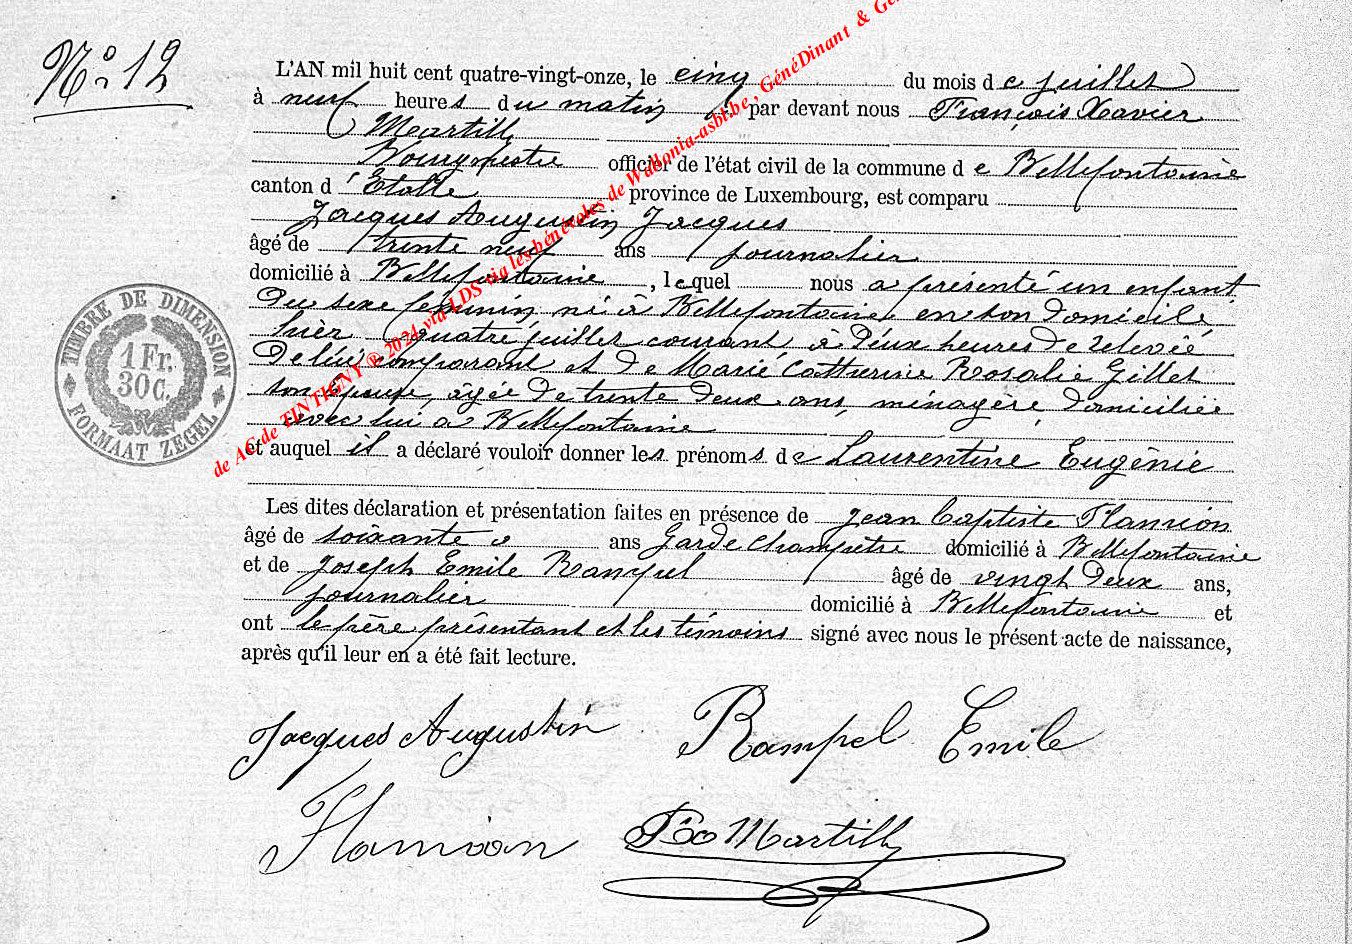 N° 12
L'AN mil huit cent quatre-vingt-onze, le cinq du mois de juillet
à neuf heures du matin, par devant nous François Xavier
Martilly
Bourgmestre officier de l'état civil de la commune de Bellefontaine
canton d'Etalle province de Luxembourg, est comparu
Jacques Augustin Jacques
âgé de trente neuf ans journalier
domicilié à Bellefontaine, lequel nous a présenté un enfant
du sexe féminin, né à Bellefontaine, en son domicile
hier quatre juillet courant à deux heures de relevée
de lui comparant et de Marie Catherine Rosalie Gillet
son épouse, âgée de trente deux ans, ménagère domiciliée
avec lui à Bellefontaine
et auquel il a déclaré vouloir donner les prénoms de Laurentine Eugénie
Les dites déclaration et présentation faites en présence de Jean Baptiste Flamion
âgé de soixante ans Garde champêtre domicilié à Bellefontaine
et de Joseph Emile Rampel âgé de vingt deux ans,
journalier domicilié à Bellefontaine et
ont le père présentant et les témoins signé avec nous le présent acte de naissance,
après qu'il leur en a été fait lecture.
Jacques Augustin Rampel Emile
Flamion Martilly
TIMBRE DE DIMENSION
1 Fr.
30 C.
FORMAAT ZEGEL
de AC de TINTIGNY ® 2024 via LDS via les bénévoles de Wallonia-asbl.be, GénéDinant &